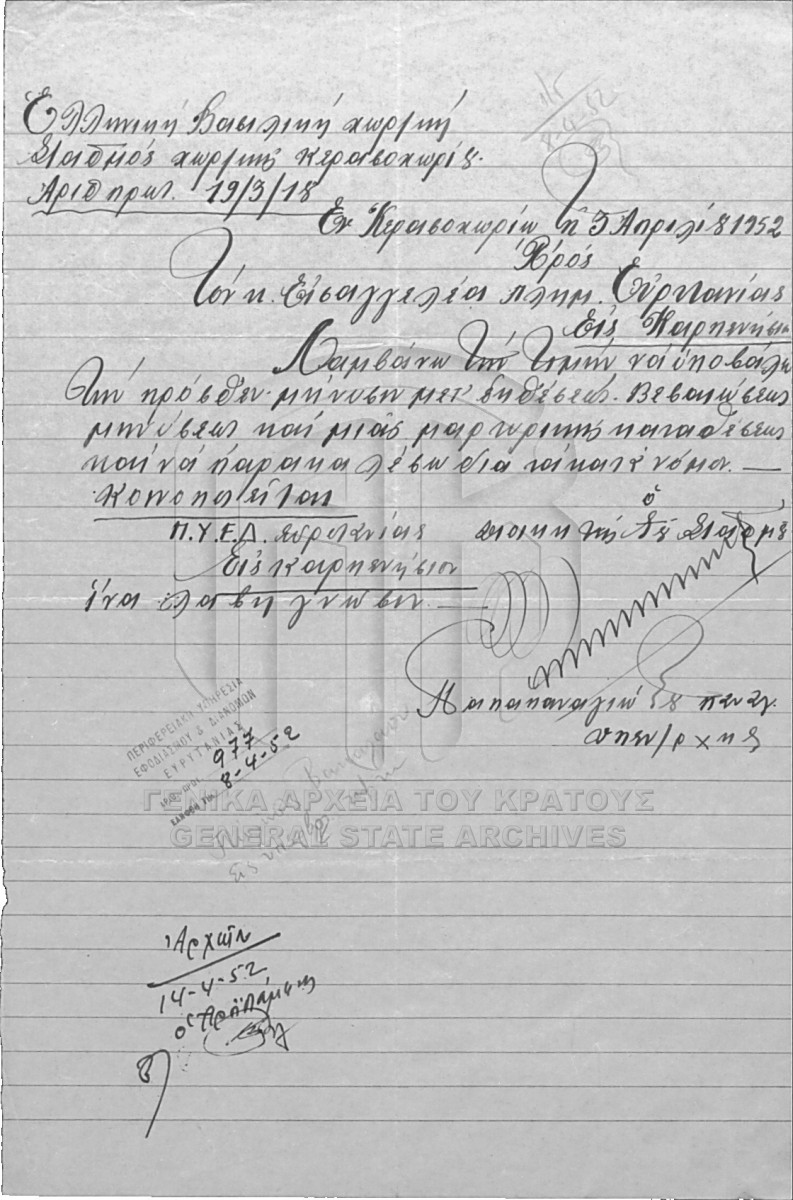 Ἑλληνική Βασιλική χωρ/κή
Σταθμός χωρ/κῆς Κερασοχωρίȣ.
Αριθ πρωτ. 19/3/18
1/5
8-4-52
Ἐν Κερασοχωρίω τῆ 5 Απριλίȣ 1952
Πρός
Τόν κ. Εἰσαγγελέα Πλημ. Εὐρυτανίας
Εἰς Καρπενήσιον
Λαμβάνω τήν τιμήν νά ὑποβάλω
τήν πρόσθεν μήνυσιν μετ' ἐκθέσεως. Βεβαιώσεως
μηνύσεως καί μιᾶς μαρτυρικῆς καταθέσεως
καί νά παρακαλέσω διά τά κατά νόμον. —
Κοινοποιεῖται
Π.Υ.Ε.Δ. Εὐρυτανίας
Εἰς Καρπενήσιον
ἵνα λάβη γνῶσιν
ὁ
Διοικητής τοῦ Σταθμȣ
Παπαπαναγιώτȣ Παναγ.
Υπεν/ρχης
ΠΕΡΙΦΕΡΕΙΑΚΗ ΥΠΗΡΕΣΙΑ
ΕΦΟΔΙΑΣΜΟΥ & ΔΙΑΝΟΜΩΝ
ΕΥΡΥΤΑΝΙΑΣ
977
8-4-52
ΓΕΝΙΚΑ ΑΡΧΕΙΑ ΤΟΥ ΚΡΑΤΟΥΣ
GENERAL STATE ARCHIVES
Ἀρχεῖον
14-4-52
ὁ Προϊστάμενος